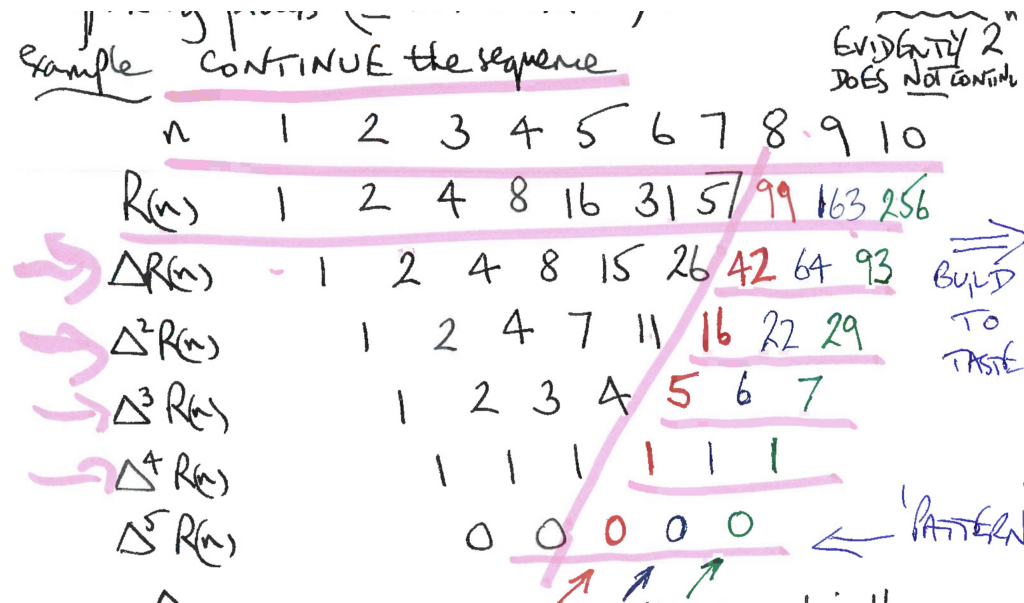 example CONTINUE the sequence
EVIDENTLY 2ⁿ
DOES NOT CONTINU
n 1 2 3 4 5 6 7 8 9 10
R(n) 1 2 4 8 16 31 57 99 163 256
ΔR(n) 1 2 4 8 15 26 42 64 93
BUILD
TO
TASTE
Δ² R(n) 1 2 4 7 11 16 22 29
Δ³ R(n) 1 2 3 4 5 6 7
Δ⁴ R(n) 1 1 1 1 1 1
Δ⁵ R(n) 0 0 0 0 0
'PATTERN'